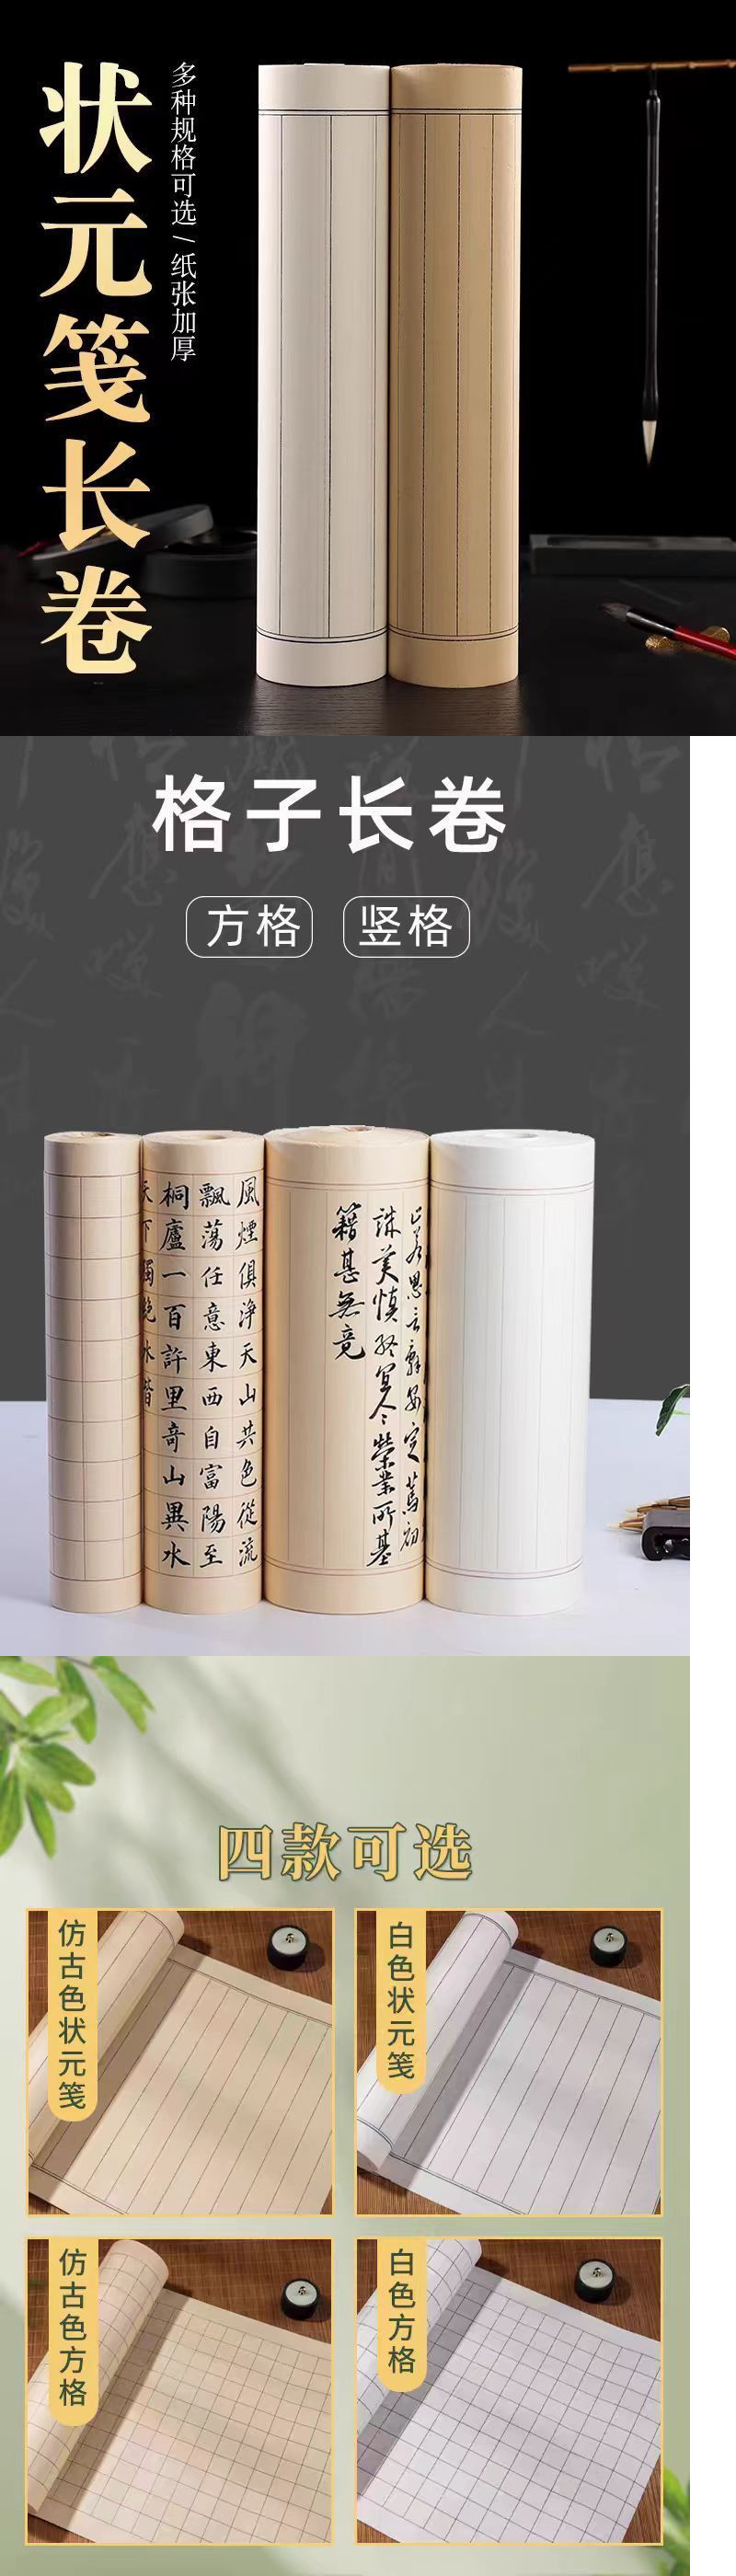 状元笺长卷
多种规格可选/纸张加厚
格子长卷
方格
竖格
風煙俱淨天山共色從流
飄蕩任意東西自富陽至
桐廬一百許里奇山異水
誄美慎終宜令榮業所基
籍甚無竟
四款可选
仿古色状元笺
白色状元笺
仿古色方格
白色方格